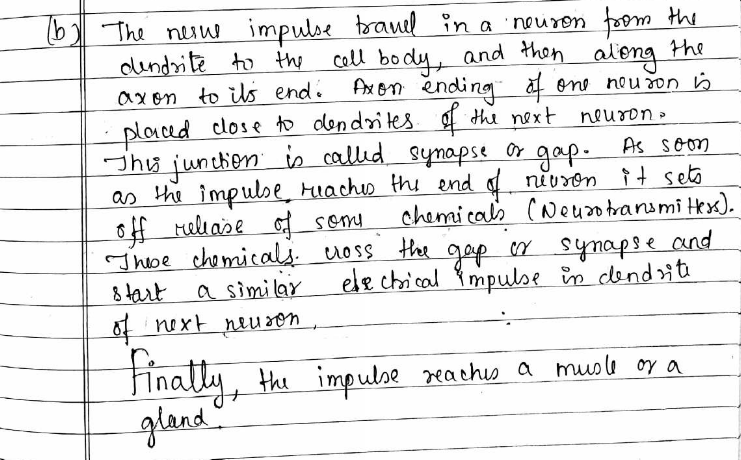 (b) The nerve impulse travel in a neuron from the
dendrite to the cell body, and then along the
axon to its end. Axon ending of one neuron is
placed close to dendrites of the next neuron.
This junction is called synapse or gap. As soon
as the impulse reaches the end of neuron it sets
off release of some chemicals (Neurotransmitters).
These chemicals cross the gap or synapse and
start a similar electrical impulse in dendrite
of next neuron.
Finally, the impulse reaches a muscle or a
gland.